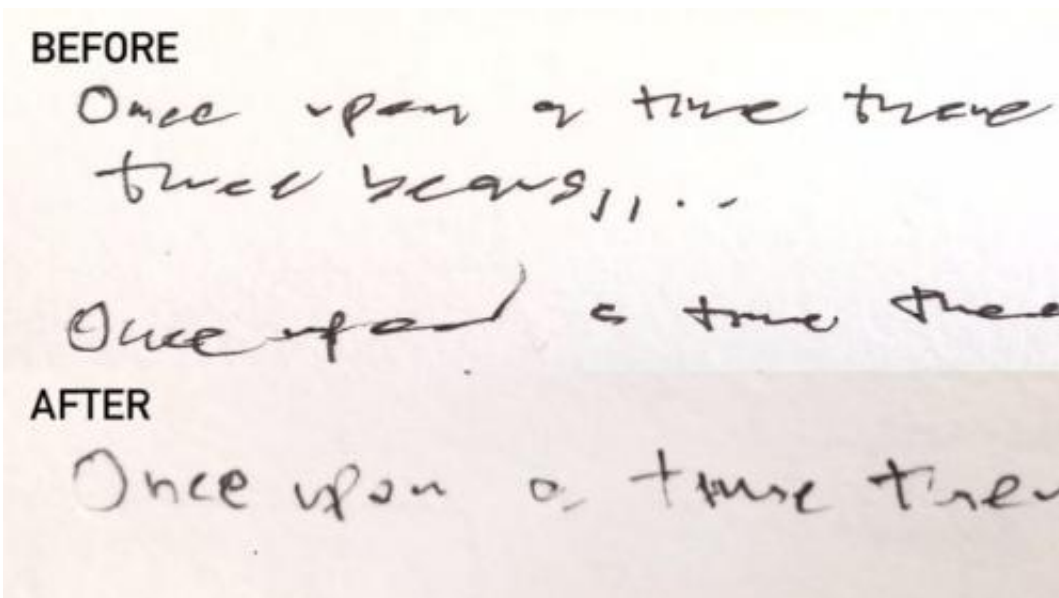 BEFORE
Once upon a time there
three bears,,,...
Once upon a time
AFTER
Once upon a time